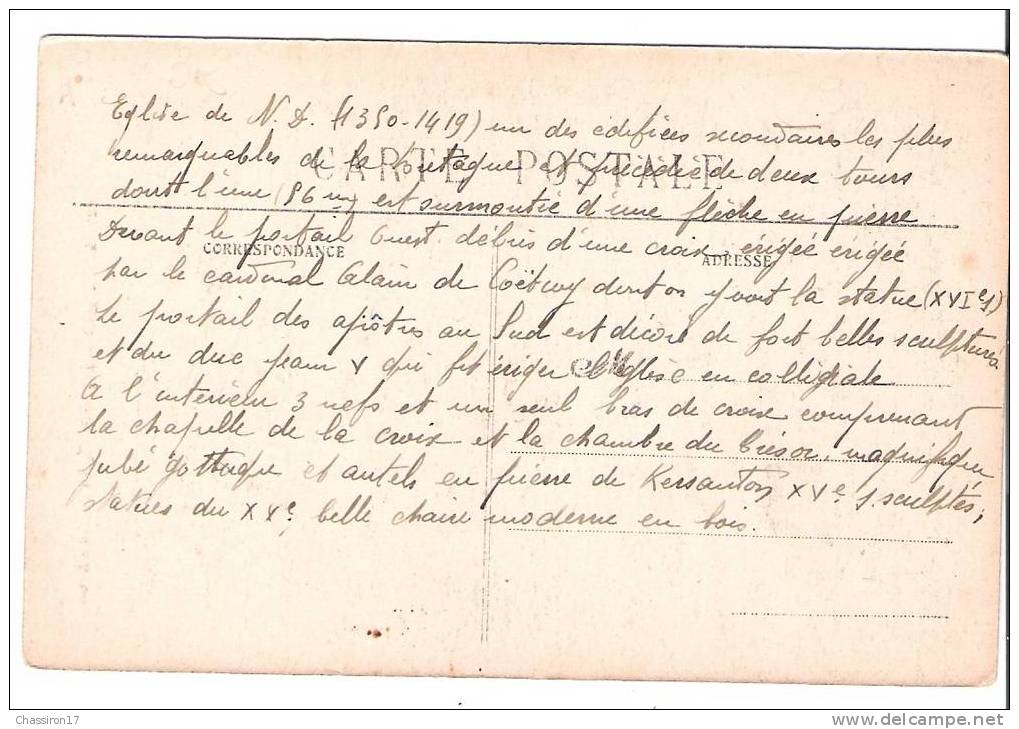 Eglise de N. D. (1350-1419) un des édifices secondaires les plus
CARTE POSTALE
remarquables de la Bretagne est précédée de deux tours
dont l'une (86 m) est surmontée d'une flèche en pierre
Devant le portail Ouest. débris d'une croix érigée érigée
CORRESPONDANCE
ADRESSE
par le cardinal Alain de Coëtivy dont on y voit la statue (XVIe s)
Le portail des apôtres au Sud est décoré de fort belles sculptures
et du duc Jean V qui fit ériger l'Eglise en collégiale
A l'intérieur 3 nefs et un seul bras de croix comprenant
la chapelle de la croix et la chambre du trésor, magnifique
jubé gothique et autels en pierre de Kersanton XVe s. sculptés,
statues du XXe. belle chaire moderne en bois.
Chassiron17
www.delcampe.net